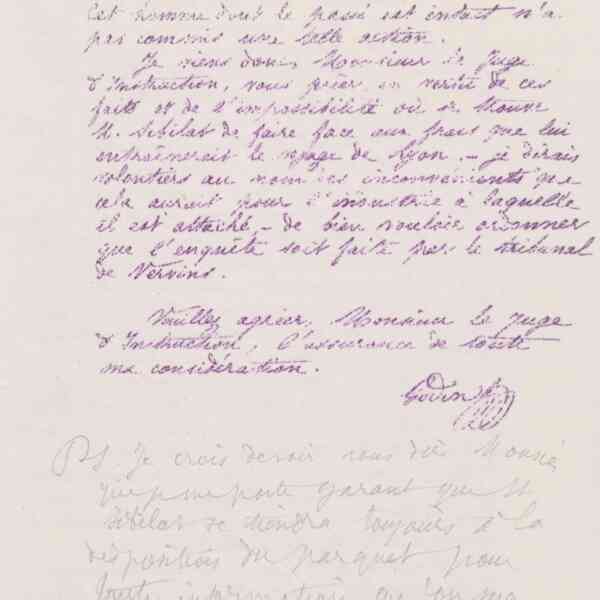 cet homme dont le passé est intact n'a
pas commis une telle action.
Je viens donc, Monsieur le Juge
d'Instruction, vous prier, en vertu de ces
faits et de l'impossibilité où se trouve
M. Sibilat de faire face aux frais que lui
entraînerait le voyage de Lyon, - je dirais
volontiers au nom des inconvénients que
cela aurait pour l'industrie à laquelle
il est attaché, - de bien vouloir ordonner
que l'enquête soit faite par le tribunal
de Vervins.
Veuillez agréer, Monsieur le Juge
d'Instruction, l'assurance de toute
ma considération.
Godin
PS. Je crois devoir vous dire Monsie
que je me porte garant que M
Sibilat se tiendra toujours à la
disposition du parquet pour
toute information que l'on